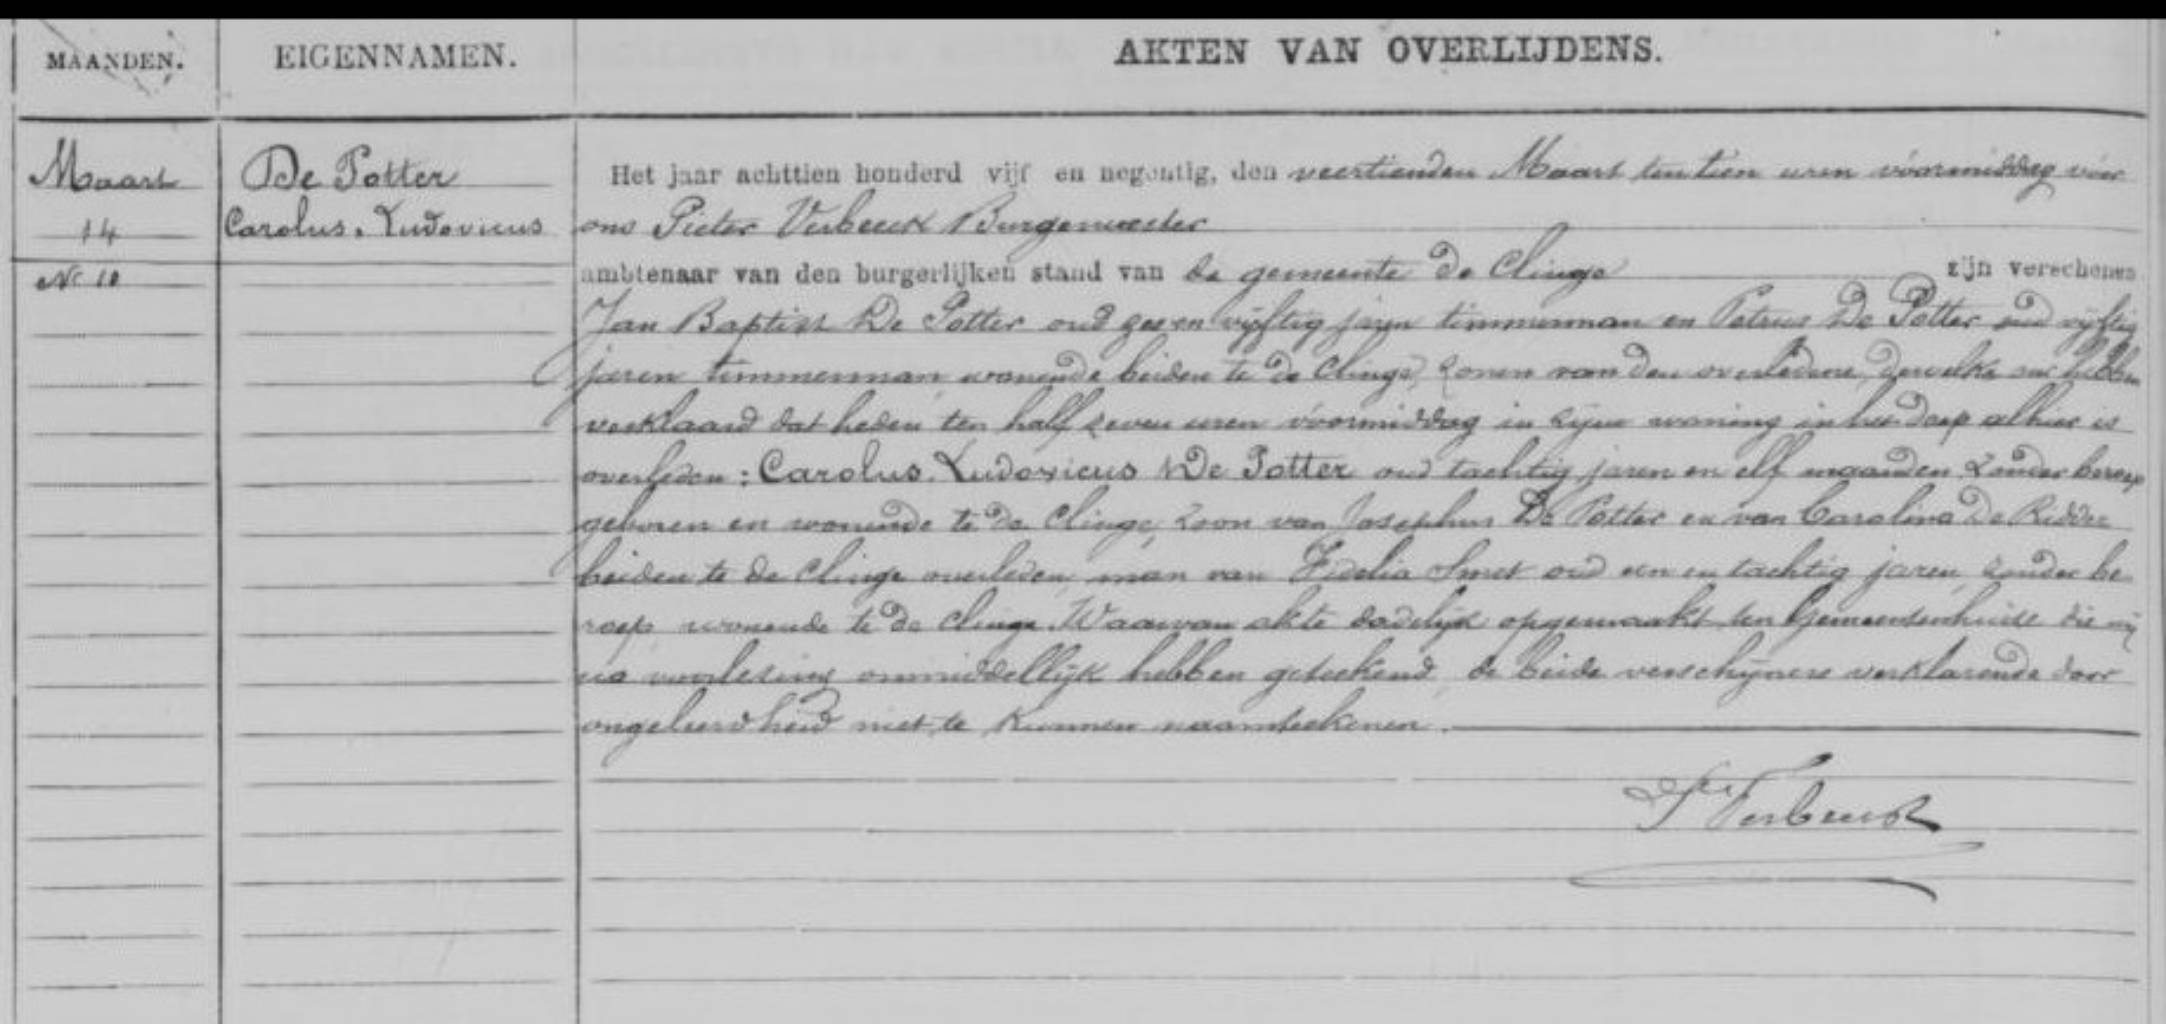 MAANDEN.
EIGENNAMEN.
AKTEN VAN OVERLIJDENS.
Maart
14
No 10
De Potter
Carolus. Ludovicus
Het jaar achttien honderd vijf en negentig, den veertienden Maart ten tien uren vóórmiddag vóór
ons Pieter Verbeeck Burgemeester
ambtenaar van den burgerlijken stand van de gemeente De Clinge zijn verschenen
Jan Baptist De Potter oud en vijftig jaren timmerman en Petrus De Potter oud vijftig
jaren timmerman wonende beiden te De Clinge, zonen van den overledene, dewelke hebben
verklaard dat heden ten half zeven uren vóórmiddag in zijne woning in het dorp alhier is
overleden: Carolus. Ludovicus De Potter oud tachtig jaren en elf maanden zonder beroep
geboren en wonende te De Clinge, zoon van Josephus De Potter en van Carolina De Ridder
beiden te De Clinge overleden, man van Fidelia Smet oud een en tachtig jaren, zonder be
roep wonende te De Clinge. Waarvan akte dadelijk opgemaakt ten Gemeentenhuize die wij
na voorlezing onmiddellijk hebben geteekend, de beide verschijners verklarende door
ongeleerdheid niet te kunnen naamteekenen.
P Verbeeck